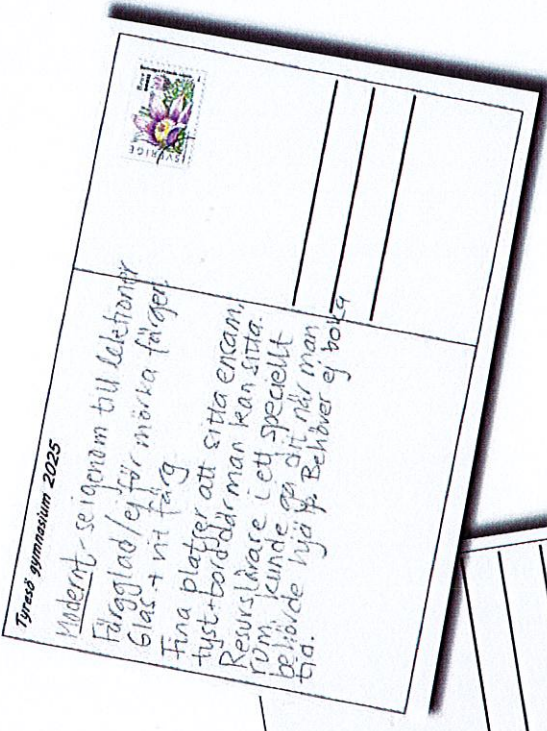 Tyresö gymnasium 2025
Modernt - se igenom till lektioner
Färgglad/ej för mörka färger
Glas + vit färg
Fina platser att sitta ensam,
tyst + bord där man kan sitta.
Resurslärare i ett speciellt
rum, kunde gå dit när man
behövde hjälp. Behöver ej boka
tid.
SVERIGE